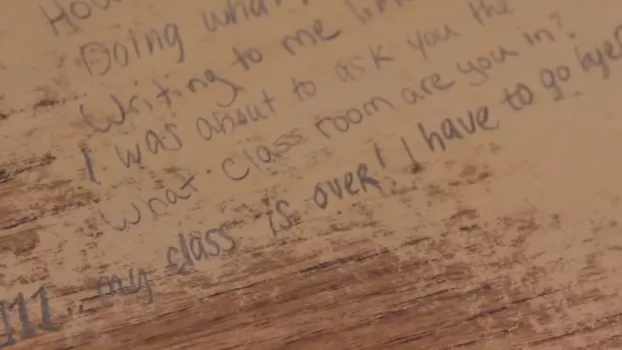 Doing what
Writing to me
I was about to ask you the
What class room are you in?
my class is over! I have to go bye
111